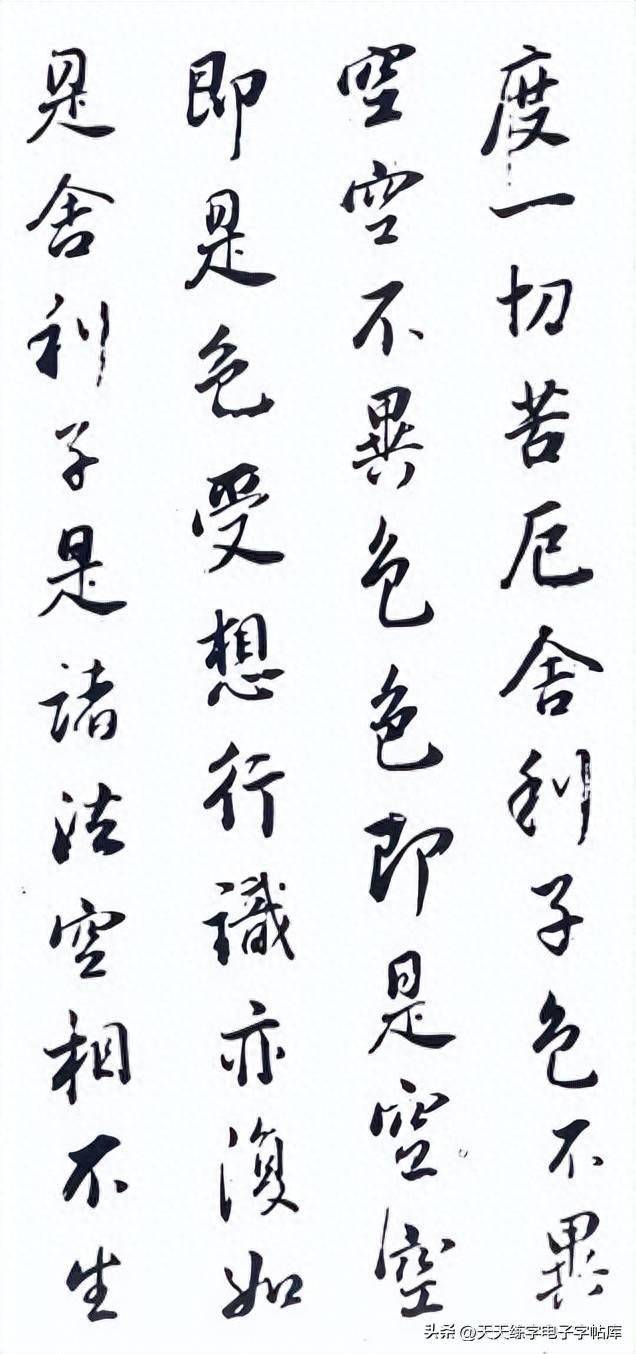 度一切苦厄舍利子色不異
空空不異色色即是空空
即是色受想行識亦復如
是舍利子是諸法空相不生
头条 @天天练字电子字帖库